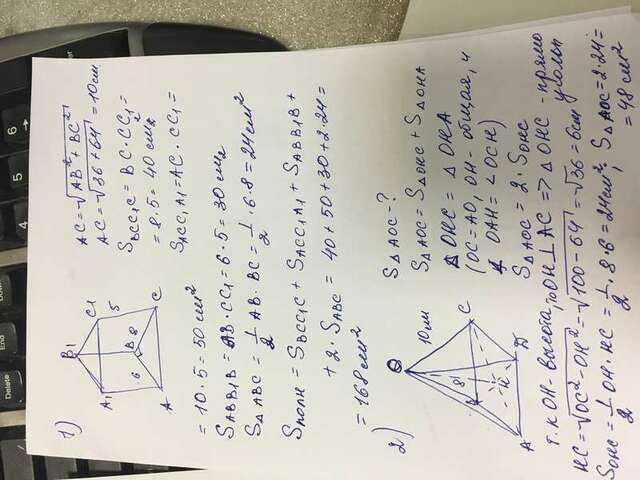 1)
B1
C1
A1
5
B
8
6
C
A
AC=√AB²+BC²
AC=√36+64=10см
SBCC1C=BC·CC1=
=8·5=40см2
SACC1A1=AC·CC1=
=10·5=50см²
SABB1B=AB·CC1=6·5=30см2
S△ABC=1/2 AB·BC=1/2·6·8=24см²
Sполн=SBCC1C+SACC1A1+SABB1B+
+2·SABC=40+50+30+2·24=
=168см²
2)
O
10м
8
C
H
A
D
S△AOC-?
S△AOC=S△OHC+S△OHA
△OHC=△OHA
(OC=AO, OH-общая, и
∠OAH=∠OCH)
S△AOC=2·SOHC
т.к OH-высота, то OH⊥AC=>△OHC-прямо
угольн
HC=√OC²-OH²=√100-64=√36=6см
SOHC=1/2 OH·HC=1/2·8·6=24см², S△AOC=2·24=
=48см²
6
5
End
Delete
Delete